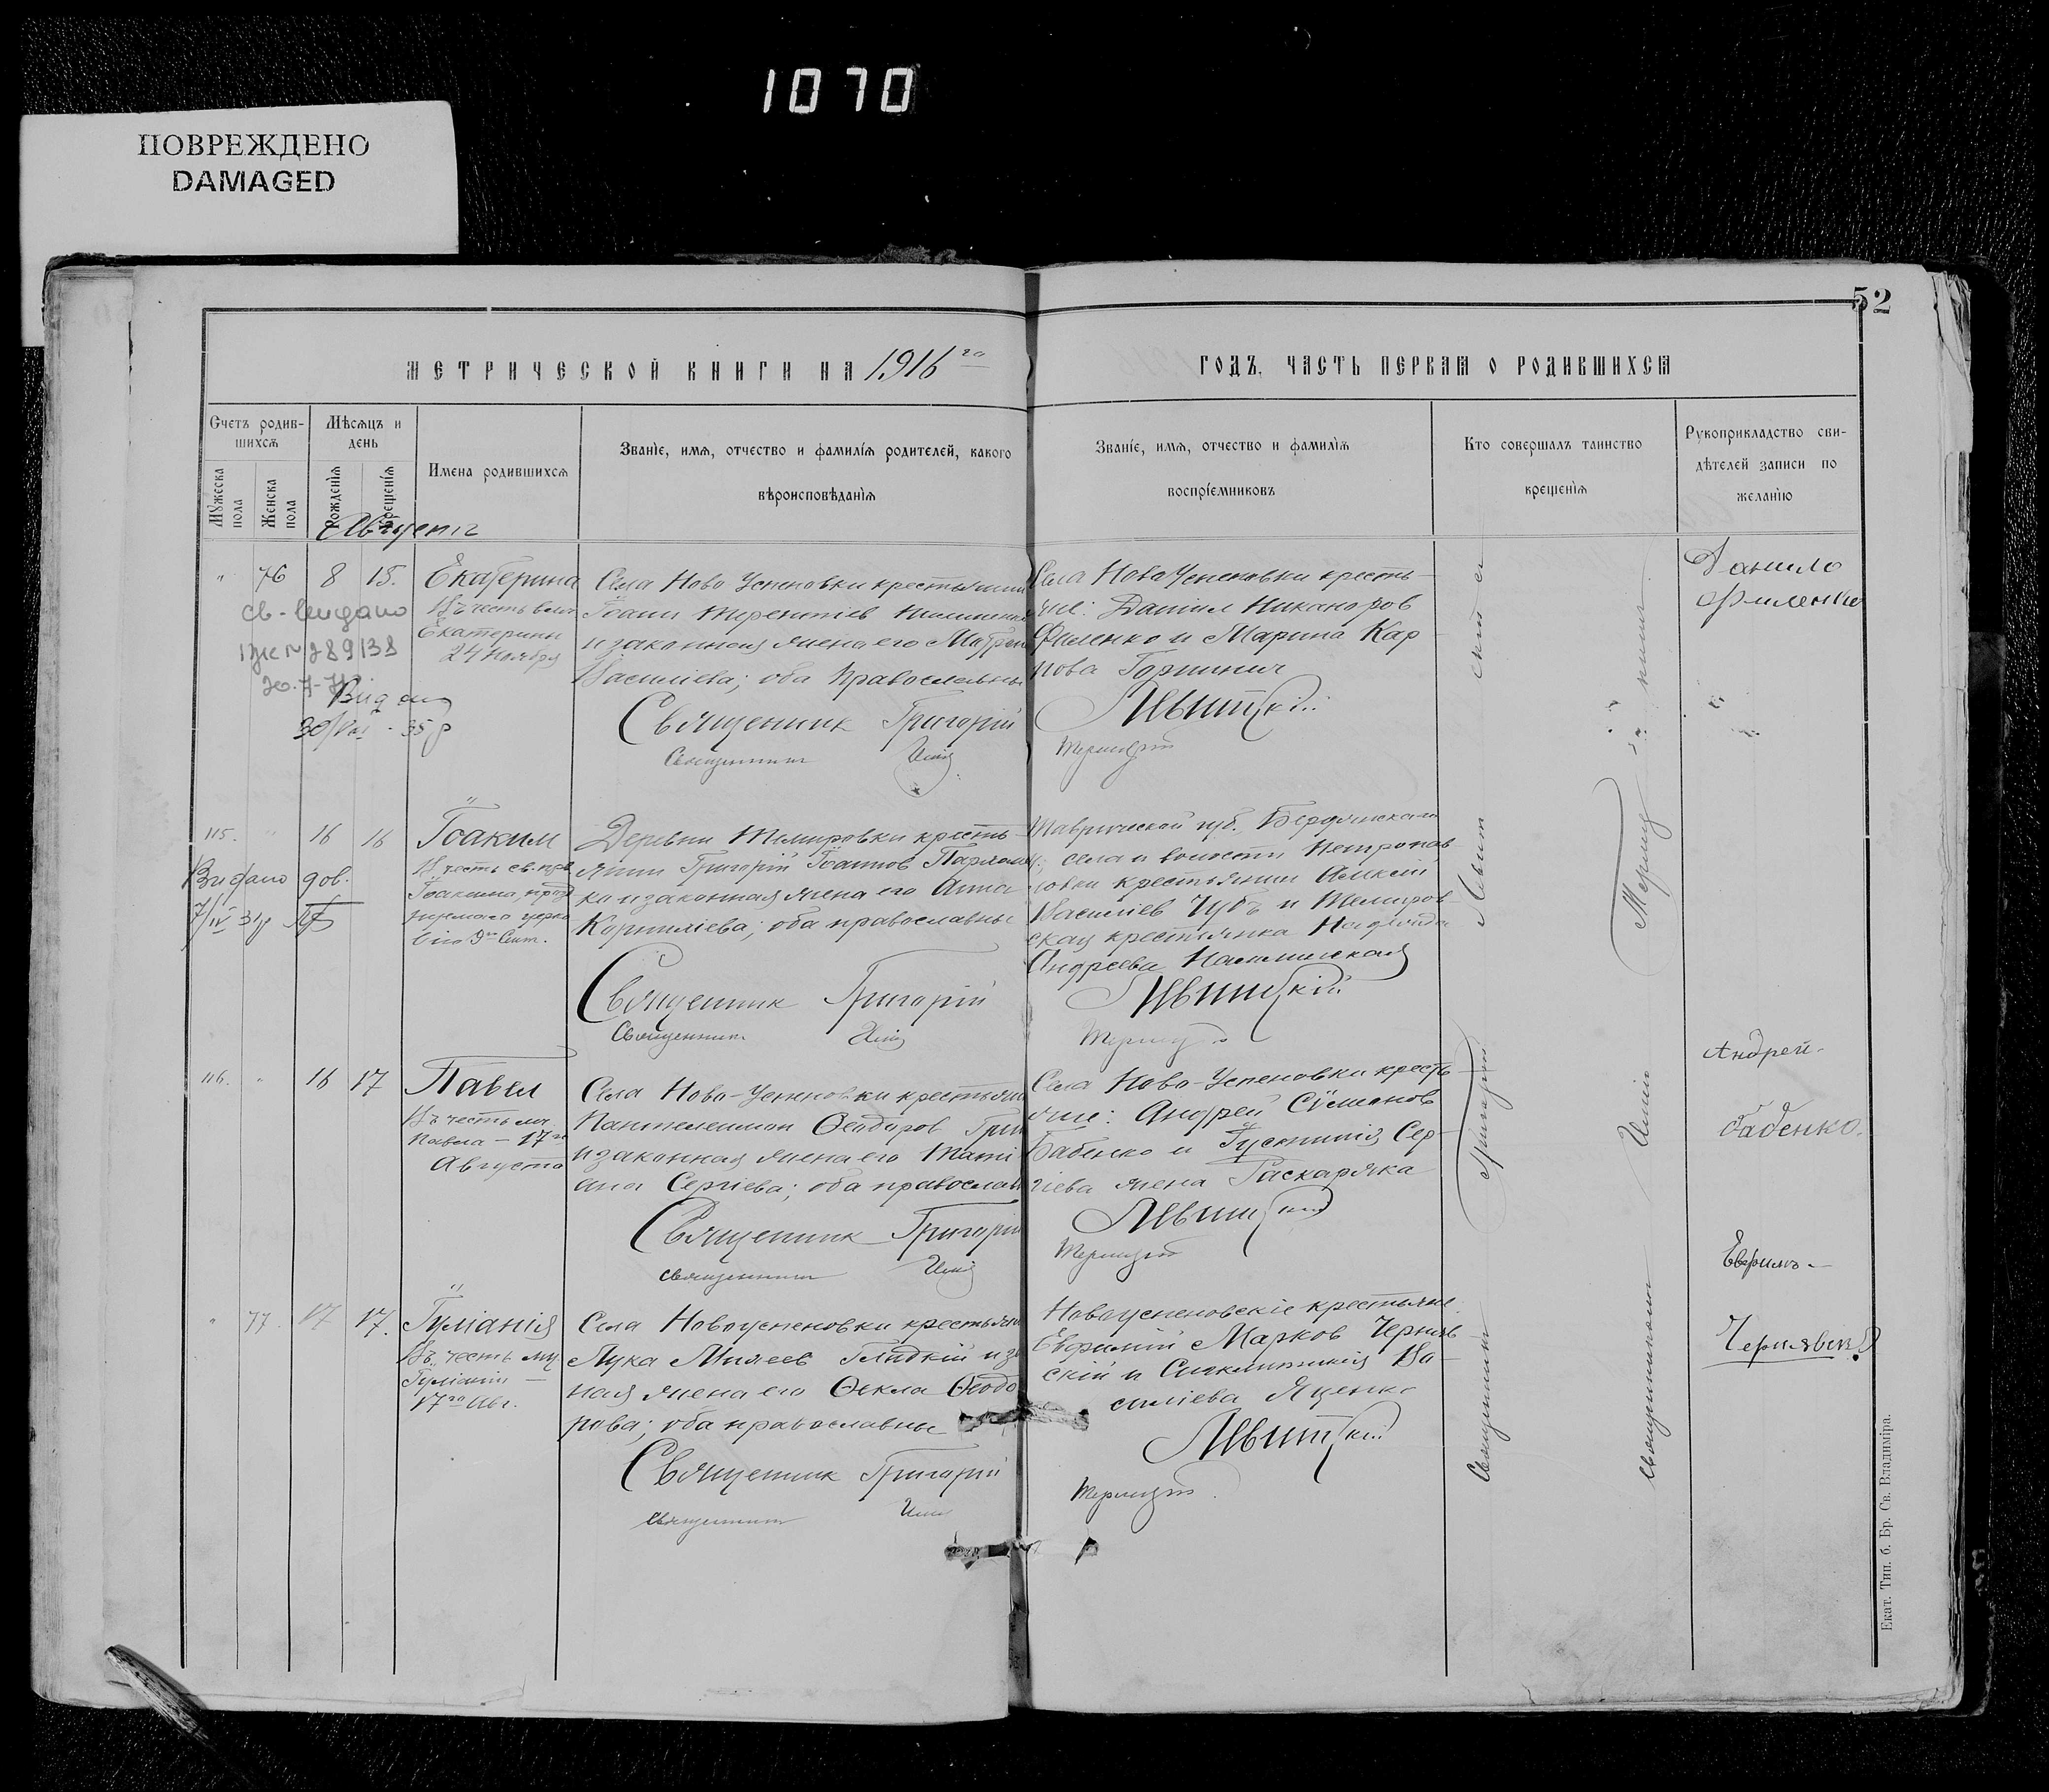 1070
ПОВРЕЖДЕНО
DAMAGED
52
МЕТРИЧЕСКОЙ КНИГИ НА 1916 го
ГОДЪ, ЧАСТЬ ПЕРВАЯ О РОДИВШИХСЯ
Счетъ родив-
шихся
Мужеска
пола
Женска
пола
Мѣсяцъ и
день
Рожденія
Крещенія
Имена родившихся
Званіе, имя, отчество и фамилія родителей, какого
вѣроисповѣданія
Званіе, имя, отчество и фамилія
воспріемниковъ
Кто совершалъ таинство
крещенія
Рукоприкладство сви-
дѣтелей записи по
желанію
Августъ
" 76 8 15. Екатерина
Въ честь
Екатерины
24 ноября
Села Ново Успеновки крестьянин
Іоанн Терентіев
и законная жена его
Василіева; оба православны
Священник Григорій
Священник
Села НовоУспеновки кресть-
яне: Даніил Никаноров
Филенко и Марина Кар-
пова
Левитскій
Данило
Филенко
св. видано
289138
30/VIII - 35 р
115. " 16 16 Іоаким
Іоакима
9 го Сент.
Видано дов.
7/IV 31р
Деревни Темировки кресть-
янин Григорій Іоаннов
ко и законная жена его Анна
Корниліева; оба православны
Священник Григорій
Священник
Таврической губ. Бердянскаго
у. села и волости Петропав-
ловки крестьянин Алексій
Василіев Чуб и Темиров-
ская крестьянка Надежда
Андреева
Левитскій
116. " 16 17 Павел
Въ честь мч.
Павла - 17 го
Августа
Села Ново-Успеновки крестьянин
Пантелеимон Ѳеодоров
и законная жена его Тати-
ана Сергіева; оба православ
Священник Григорій
священник
Села Ново-Успеновки кресть-
яне: Андрей Сѵмеонов
Бабенко и Іустинія Сер-
гіева жена
Левитскій
Андрей
Бабенко.
" 77. 17 17. Іуліанія
Въ честь му.
Іуліаніи
17 го Авг.
Села Новоуспеновки крестьянин
Лука Гладкій и за
ная жена его Ѳекла Ѳеодо
рова; оба православны
Священник Григорій
священник
Новоуспеновскіе крестьяне:
Евфимій Марков Черняв-
скій и Синклитикія Ва-
силіева Яценко
Левитскій
Евфимъ
Чернявск
Священник Григорій Левит ский
Екат. Тип. б. Бр. Св. Владиміра.